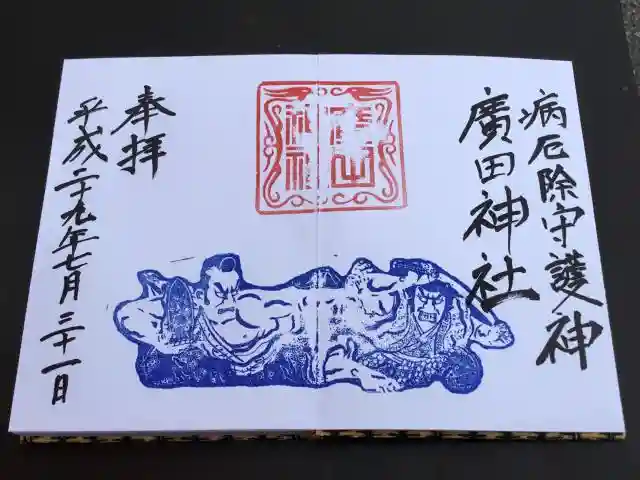 病厄除守護神
廣田神社
奉拝
平成二十九年七月三十一日